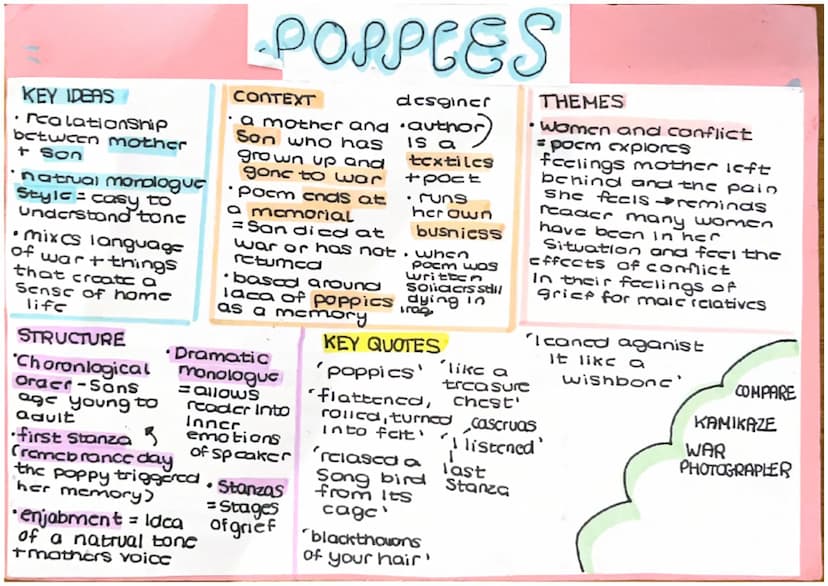 POPPIES
KEY IDEAS
• realationship
between mother
+ son
• natrual monologue
style = easy to
understand tone
• mixes language
of war + things
that create a
sense of home
life
CONTEXT
• a mother and
Son who has
grown up and
gone to war
• poem ends at
a memorial
= Son died at
war or has not
returned
• based around
idea of poppies
as a memory
desginer
• author)
is a
textiles
+ poet
• runs
her own
busniess
• when
poem was
written
soliders still
dying in
iraq
THEMES
• Women and conflict
= poem explores
feelings mother left
behind and the pain
she feels → reminds
reader many women
have been in her
Situation and feel the
effects of conflict
In their feelings of
grief for male relatives
STRUCTURE
• Choronlogical
order - Sons
age young to
adult
• first Stanza
(remebrance day
the poppy triggered
her memory)
• enjabment = idea
of a natrual tone
+ mothers voice
• Dramatic
monologue
= allows
reader into
inner
emotions
of speaker
• Stanzas
= Stages
of grief
KEY QUOTES
'poppies'
'flattened,
rolled, turned
into felt'
'relased a
Song bird
from its
cage'
'blackthowns
of your hair'
'like a
treasure
chest'
'I listened'
last
Stanza
'I leaned aganist
it like a
wishbone'
COMPARE
KAMIKAZE
WAR
PHOTOGRAPLER